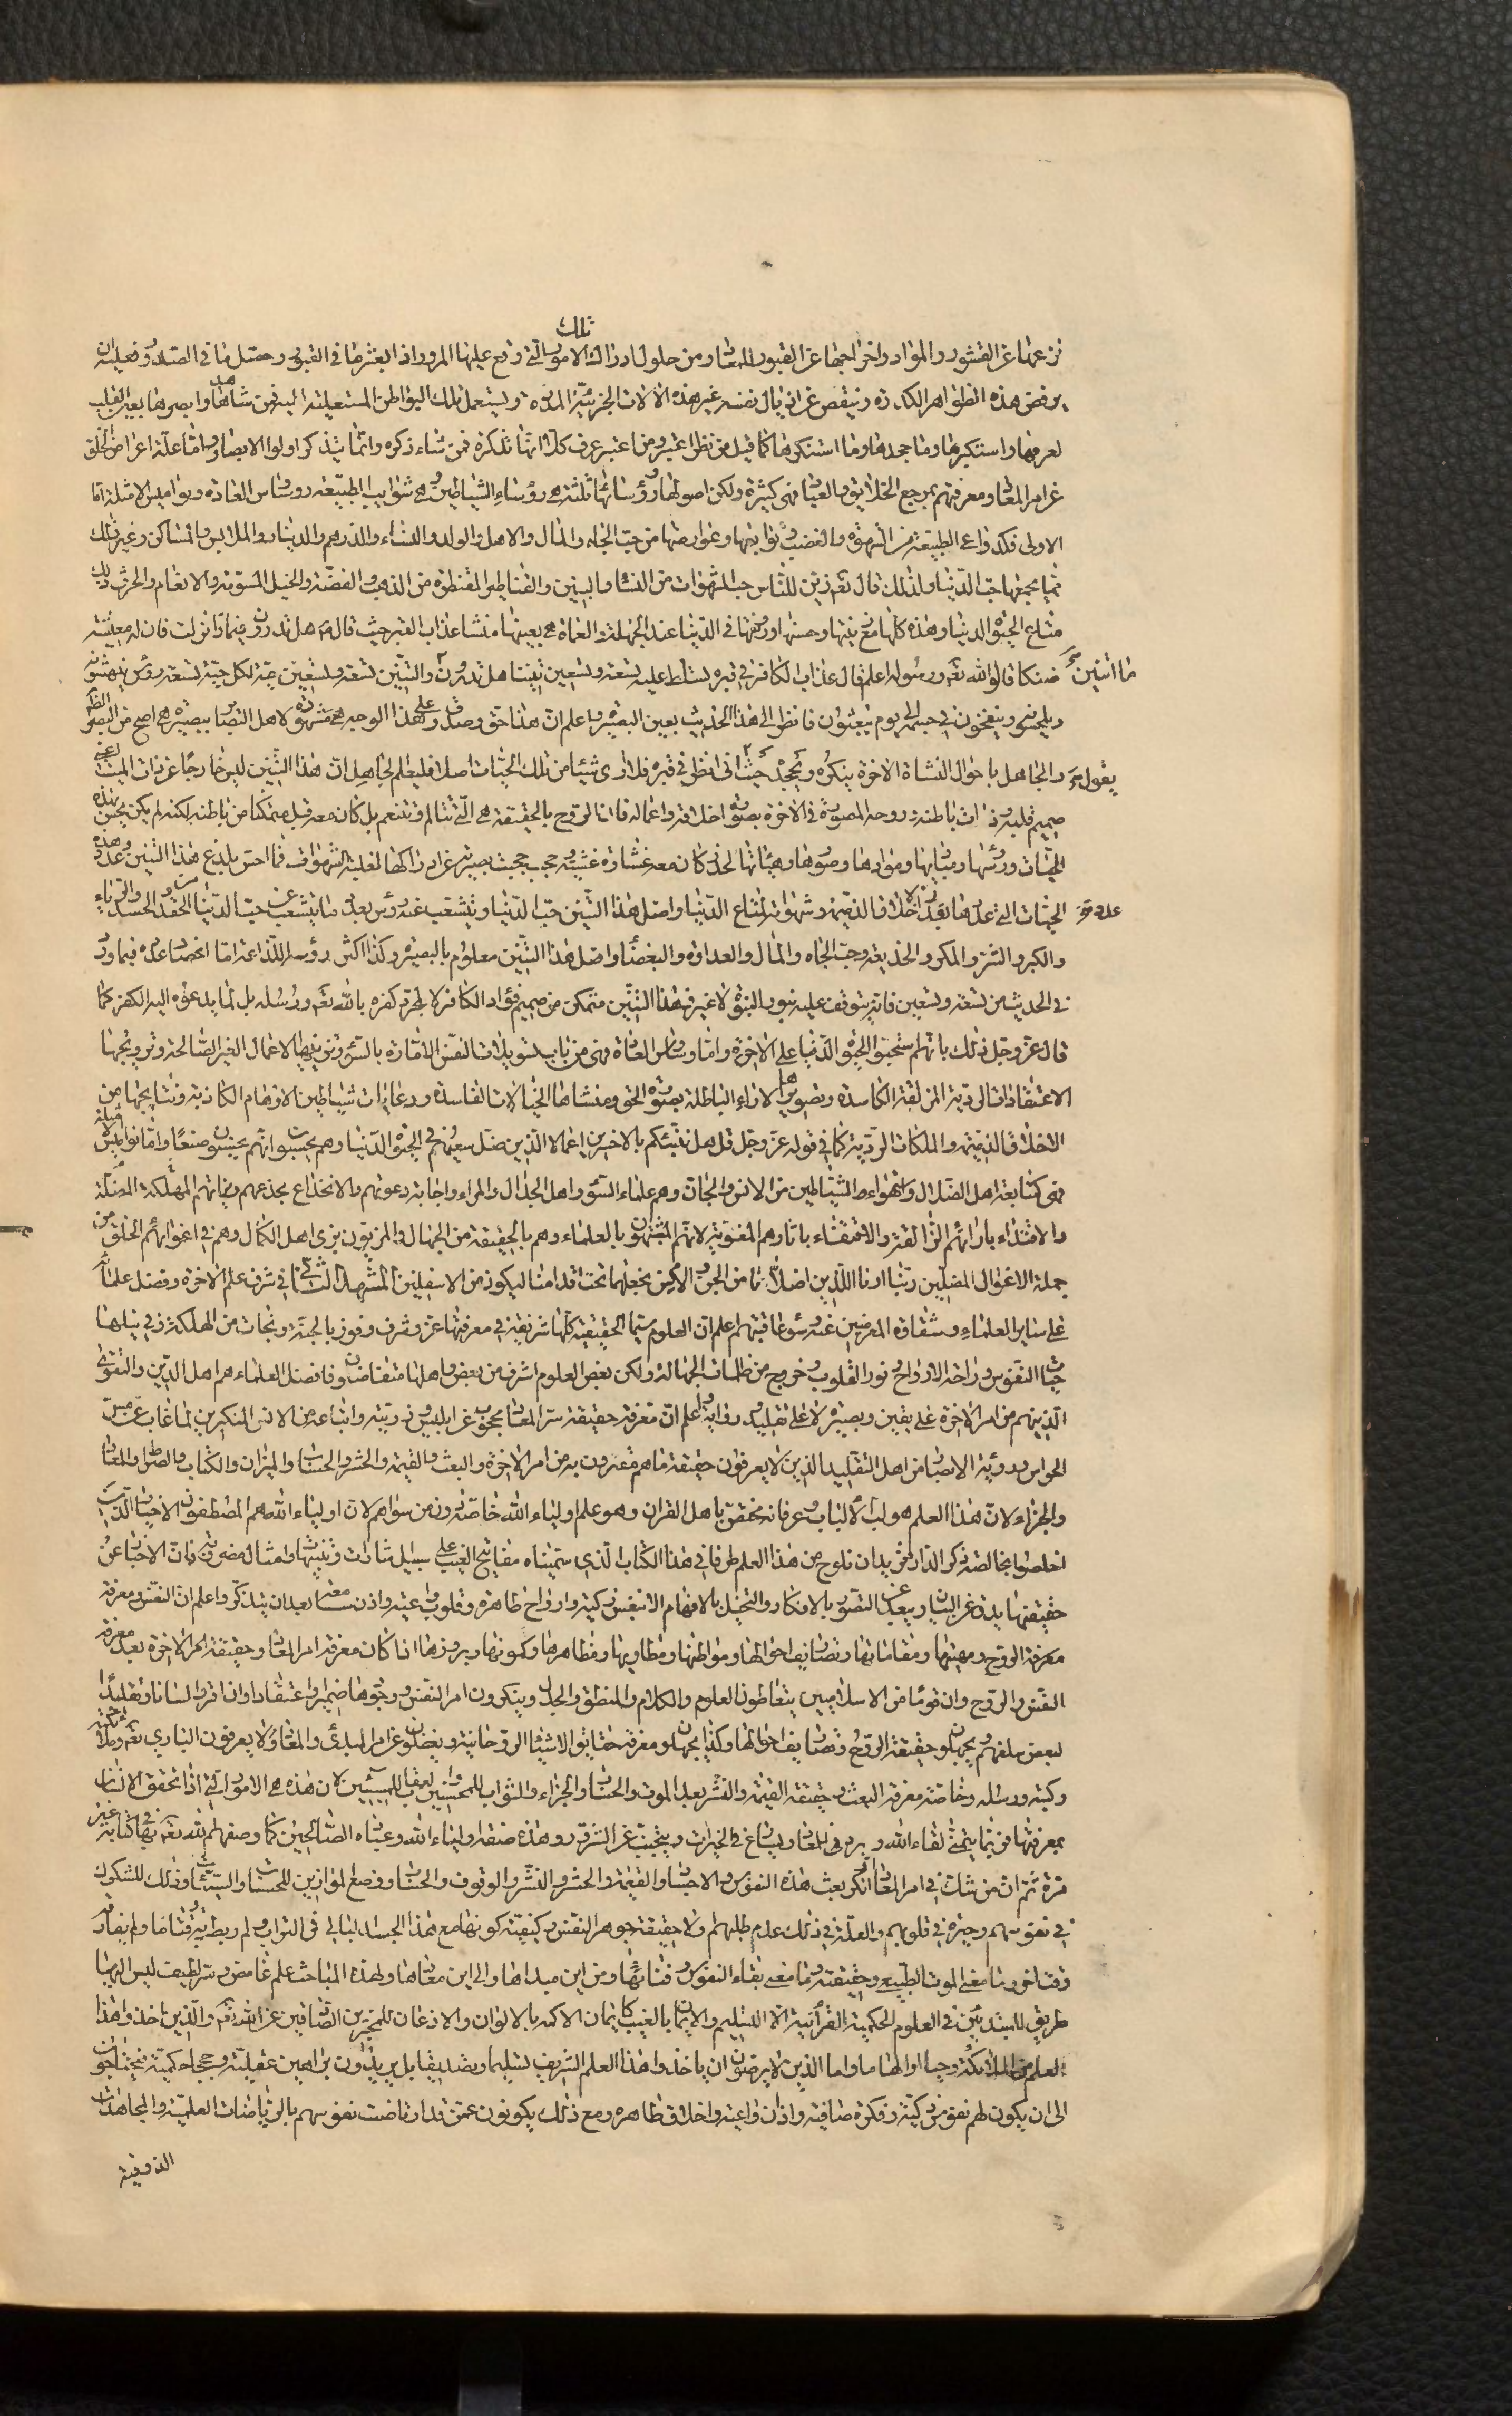 تلك
نزعها عن القشور والمواد واخراجها عن القبور للمعاد ومن حلول ادراك الامور التى وقع عليها المرور اذا بعثر ما فى القبور وحصل ما فى الصدور فعليه ان
يرفض هذه الظواهر الكدرة وينفض عن اذيال نفسه غير هذه الالات الجزئية ويستعمل تلك البواطن المستعلية اليه فمن شاهدها وابصرها بعين القلب
لعرفها واستكبرها وما جحدها وما استنكرها كما قيل من نظر اعتبر ومن اعتبر عرف كلا انها تذكرة فمن شاء ذكره وانما يتذكر اولوا الابصار واما علة اعراض الخلق
عن امر المعاد ومعرفتهم بمرجع الخلايق والعباد فهى كثيرة ولكن اصولها ورؤسائها ثلثة هى رؤساء الشياطين وهى شوايب الطبيعة ووساوس العادة ونواميس الامثلة اما
الاولى فكدواعى الطبيعة من الشهوة والغضب وتوابعها وعوارضها من حب الجاه والمال والاهل والولد والنساء والدرهم والدينار والملابس والمساكن وغير ذلك
مما يجمعها حب الدنيا ولذلك قال تعه زين للناس حب الشهوات من النساء والبنين والقناطير المقنطرة من الذهب والفضة والخيل المسومة والانعام والحرث ذلك
متاع الحيوة الدنيا وهذه كلها مع زينها وحسنها ورونقها فى الدنيا عند الجهلة والعماة هى بعينها منشا عذاب القبر حيث قال ص هل تدرون فيما ذا نزلت فان له معيشة
ما التنين
ضنكا قالوا الله تعه ورسوله اعلم قال عذاب الكافر فى قبره يسلط عليه تسعة وتسعين تنينا هل تدرون والتنين تسعة وتسعين حية لكل حية تسعة رؤس ينهشونه
ويلحسونه وينفخون فى جسمه الى يوم يبعثون فانظر الى هذا الحديث بعين البصيرة واعلم ان هذا حق وصدق وعلى هذا الوجه هى مشهودة لاهل البصاير ببصيرة هى اصح من البصر الظاهر
يقول
والجاهل باحوال النشاة الاخرة ينكره ويجحد حيث انى انظر فى قبره فلا ارى شيئا من تلك الحيات اصلا فليعلم الجاهل ان هذا التنين ليس خارجا عن ذات الميت اعنى
صميم قلبه وذات باطنه وروحه المصورة فى الاخرة بصورة اخلاقه واعماله فان الروح بالحقيقة هى التى تتالم وتتنعم بل كان معه قبل متمكنا من باطنه لكنه لم يكن يحس بهذه
الحيات ورؤسها ومباديها وموادها وصورها وهيئاتها لخدر كان معه غشاوة غشيته وحجب حجبت بصيرته عن ادراكها لغلبة الشهوات فما احس بلدغ هذا التنين وعدد هذه
عدد
الحيات التى عددها بعدد الاخلاق الذميمة وشهواته لمتاع الدنيا واصل هذا التنين حب الدنيا ويتشعب عنه رؤس بعدد ما يتشعب عن حب الدنيا من الحقد والحسد والرياء
والكبر والشره والمكر والخديعة وحب الجاه والمال والعداوة والبغضاء واصل هذا التنين معلوم بالبصيرة وكذا كثرة رؤسه اللذاعة اما انحصار عدده فيما ورد
فى الحديث من تسعة وتسعين فانه يتوقف عليه بنور النبوة لا غير فهذا التنين متمكن من صميم فؤاد الكافر لا لمجرد كفره بالله تعه ورسله بل لما يدعوه اليه الكفر كما
قال عز وجل ذلك بانهم استحبوا الحيوة الدنيا على الاخرة واما وساوس العادة فهى من باب تسويلات النفس الامارة بالسوء وتزيينها الاعمال الغير الصالحة وترويجها
الاعتقادات الردية المزيفة الكاسدة وتصويرها الاراء الباطلة بصورة الحق ومنشاها الخيالات الفاسدة ودعابات شياطين الاوهام الكاذبة ونتايجها من
الاخلاق الذميمة والملكات الردية كما فى قوله عز وجل قل هل ننبئكم بالاخسرين اعمالا الذين ضل سعيهم فى الحيوة الدنيا وهم يحسبون انهم يحسنون صنعا واما نواميس الامثلة
فهى متابعة اهل الضلال واستهواء الشياطين من الانس والجان وهم علماء السوء واهل الجدال والمراء واجابة دعوتهم والانخداع بخدعهم المهلكة المضلة
والاقتداء بارائهم الزائغة والاقتفاء باثارهم المغوية لانهم المتشبهون بالعلماء وهم بالحقيقة من الجهال والمزيون بزى اهل الكمال وهم فى اغوائهم الخلق من
جملة الاغوال المضلين ربنا ارنا اللذين اضلانا من الجن والانس نجعلهما تحت اقدامنا ليكونا من الاسفلين المشهد الثانى فى شرف علم الاخرة وفضل علمائه
على ساير العلماء وشقاوة المعرضين عنه وسوء عاقبتهم اعلم ان العلوم سيما الحقيقية كلها شريفة فى معرفتها عز وشرف وفوز بالجنة ونجات من الهلكة وفى نيلها
حيات النفوس وراحة الارواح ونور القلوب وخروج من ظلمات الجهالة ولكن بعض العلوم اشرف من بعض واهلها متفاضلون وفاضل العلماء هم اهل الدين والتقوى
الذين هم من امر الاخرة على يقين وبصيرة لا على تقليد ورواية واعلم ان معرفة حقيقة سر المعاد محجوب عن ابليس وذريته واتباعه من الانس المنكرين لما غاب عن حس
الحواس ورؤية الابصار من اهل التقليد الذين لا يعرفون حقيقة ما هم مقرون به من امر الاخرة والبعث والقيمة والحشر والحساب والميزان والكتاب والصراط والمعاد
والجزاء لان هذا العلم هو لب الالباب وعرفانه مختص باهل القران وهو علم اولياء الله خاصة دون من سواهم لان اولياء الله هم المصطفون الاخيار الذين
اخلصوا بخالصة ذكرى الدار فنحن نريد ان نلوح من هذا العلم طرفا فى هذا الكتاب الذى سميناه مفاتيح الغيب على سبيل اشارات وتنبيهات وامثال مضروبة فان الاخبار عن
حقيقتها يدق عن البيان ويبعد عن التصور بالافكار والتخيل بالاوهام الا لنفس زكية وارواح طاهرة وقلوب واعية واذن سامعة بعد ان يتذكر واعلم ان النفس ومعرفة
معرفة الروح ومهيتها ومقاماتها وتصاريف احوالها ومواطنها ومطاويها ومظاهرها وكمونها وبروزها اذا كان معرفة امر المعاد وحقيقة امر الاخرة بعد معرفة
النفس والروح وان قوما من الاسلاميين يتعاطون العلوم والكلام والمنطق والجدل وينكرون امر النفس ووجودها ضميرا واعتقادا وان اقروا لسانا وتقليدا
لبعض سلفهم ويجهلون حقيقة الروح وتصاريف احوالها وكذا يجهلون معرفة حقايق الاشياء الروحانية ويغفلون عن امر المبدئ والمعاد ولا يعرفون البارى تعه وملائكته
وكتبه ورسله وخاصة معرفة البعث وحقيقة القيمة والنشر بعد الموت والحساب والجزاء والثواب للمحسنين والعقاب للمسيئين لان هذه هى الامور التى اذا تحقق الانسان
بمعرفتها فربما يتمنى لقاء الله ويرغب فى المعاد ويسارع فى الخيرات ويتجنب عن الشرور وهذه صفة اولياء الله وعباده الصالحين كما وصفهم الله تعه فى كتابه غير
مرة ثم ان من شك فى امر المعاد انكر بعث هذه النفوس والاجساد والقيمة والحشر والنشر والوقوف والحساب ووضع الموازين للحسنات والسيئات وذلك للشكوك
فى نفوسهم وحيرة فى قلوبهم والعلة فى ذلك عدم طلبهم اولا حقيقة جوهر النفس وكيفية كونها مع هذا الجسد البالى فى التراب ولم ربطت به وقتا ما ولم يفارقه
وقت اخر وما معنى الموت الطبيعى وحقيقته وما معنى بقاء النفوس وفنائها ومن اين مبداها والى اين معادها ولهذه المباحث علم غامض وسر لطيف ليس اليها
طريق للمبتدئين فى العلوم الحكمية القرآنية الا التسليم والايمان بالغيب كايمان الاكمه بالالوان والاذعان للمخبرين الصادقين عن الله تعه والذين اخذوا هذا
العلم من الملائكة وحيا والهاما واما الذين لا يرضون ان ياخذوا هذا العلم الشريف تسليما وتصديقا بل يريدون براهين عقلية وحججا حكمية فيحتاجون
الى ان يكون لهم نفوس زكية وفكرة صافية واذان واعية واخلاق طاهرة ومع ذلك يكونون ممن قد ارتاضت نفوسهم بالرياضات العلمية والمجاهدات
الذوقية